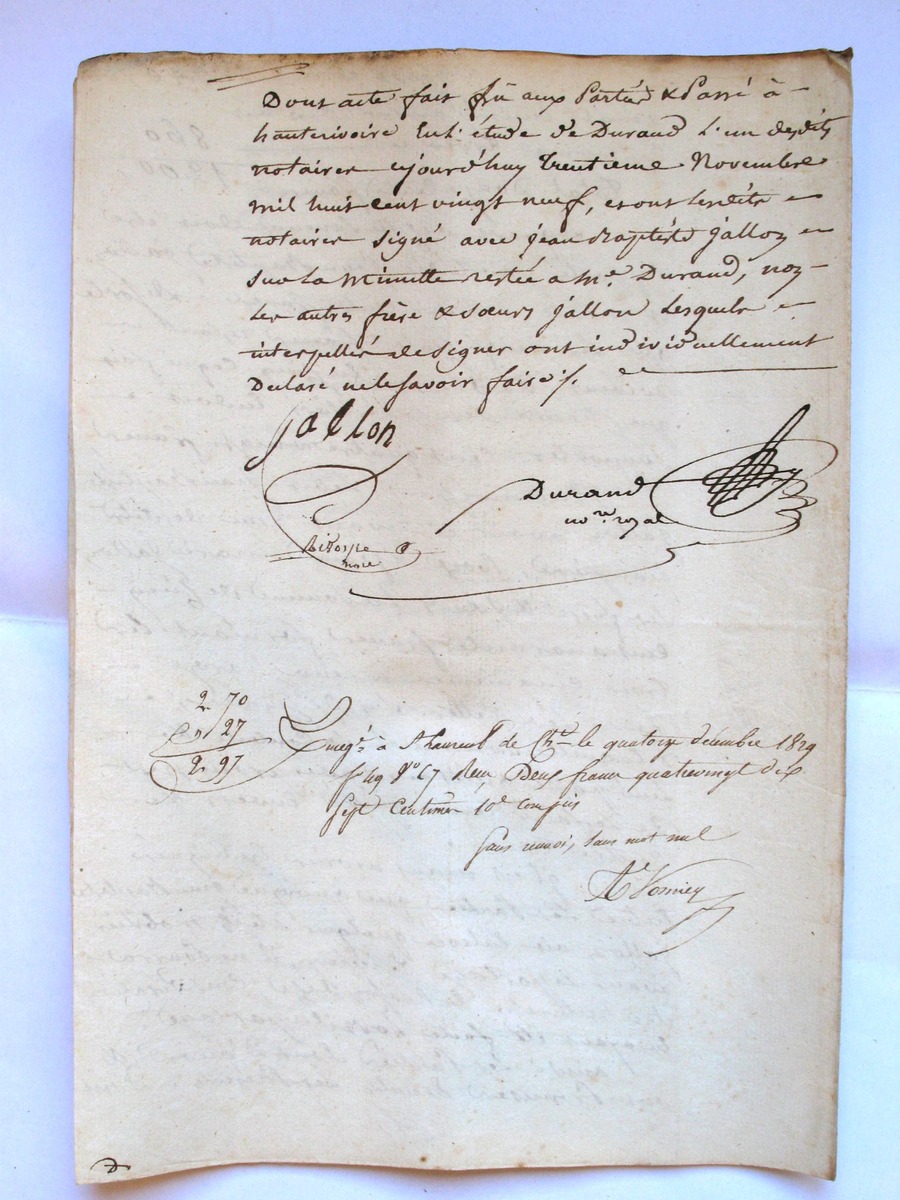 Dont acte fait lû aux Parties & Passé à
hauterivoire En l'étude de Durand l'un desdits
notaires aujourd'huy trentieme Novembre
mil huit cent vingt neuf, et ont lesdits
notaires signé avec jean Baptiste jallon
sur la Minutte restée a Me. Durand, non
les autres frère & sœurs jallon lesquels
interpellés de signer ont individuellement
Déclaré ne le savoir faire ./.
jallon
Durand
nore. royal
nore
2 70
27
2 97
Enregé. à St Laurent de Chet. le quatorze décembre 1829
fo 49 Vo C7 Reçu Deux francs quatrevingt dix
Sept Centimes 10e compris
Sans renvoi, sans mot nul